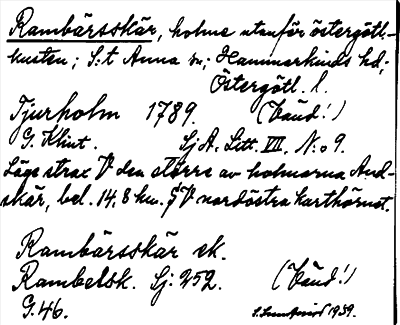 Rambärsskär, holme utanför östergötl.-
kusten; S:t Anna sn; Hammarkinds hd;
Östergötl. l.
Tjurholm 1789. (Länd!)
G. Klint. Sj.A. Litt. VII. N:o 9.
Låge strax V den större av holmarna And-
skär, bel. 14,8 km. SV nordöstra karthörnet.
Rambärsskär ek.
Rambelsk. Sj: 252. (Länd!)
G.46. 1939.